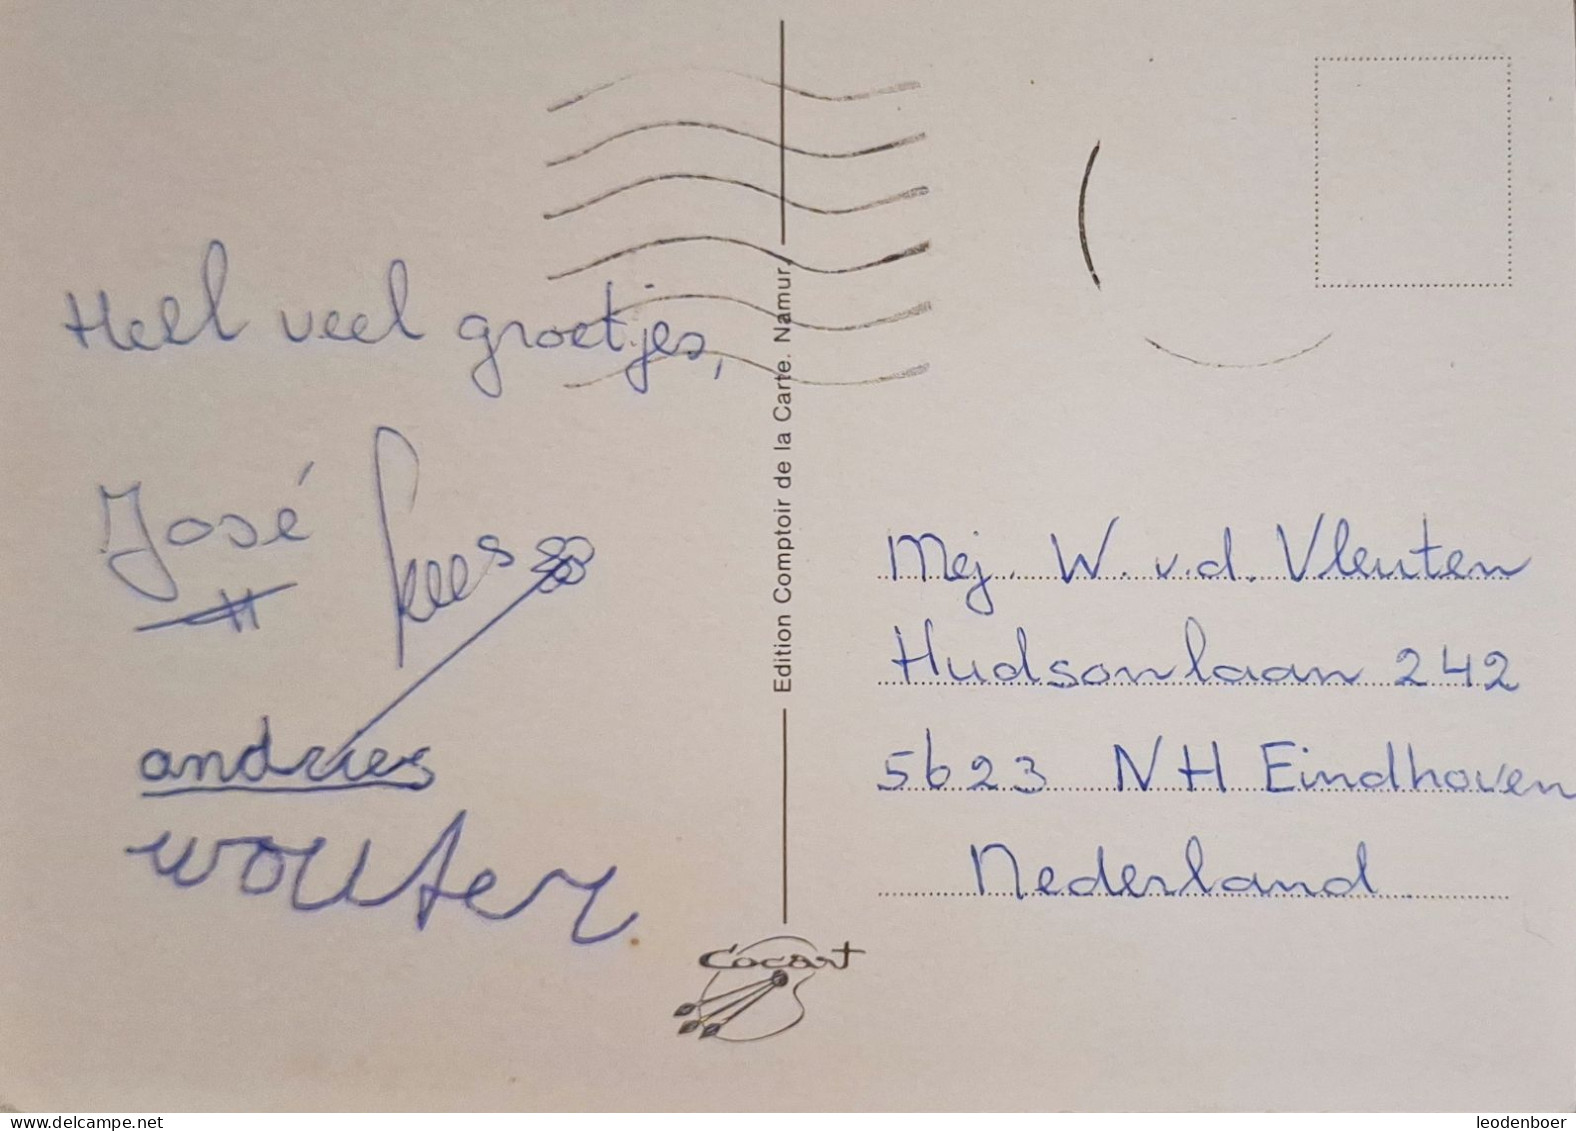 Heel veel groetjes,
José Kees
andries
wouter
Edition Comptoir de la Carte. Namur.
Mej. W. v.d. Vleuten
Hudsonlaan 242
5623 NH Eindhoven
Nederland
Cocart
www.delcampe.net
leodenboer